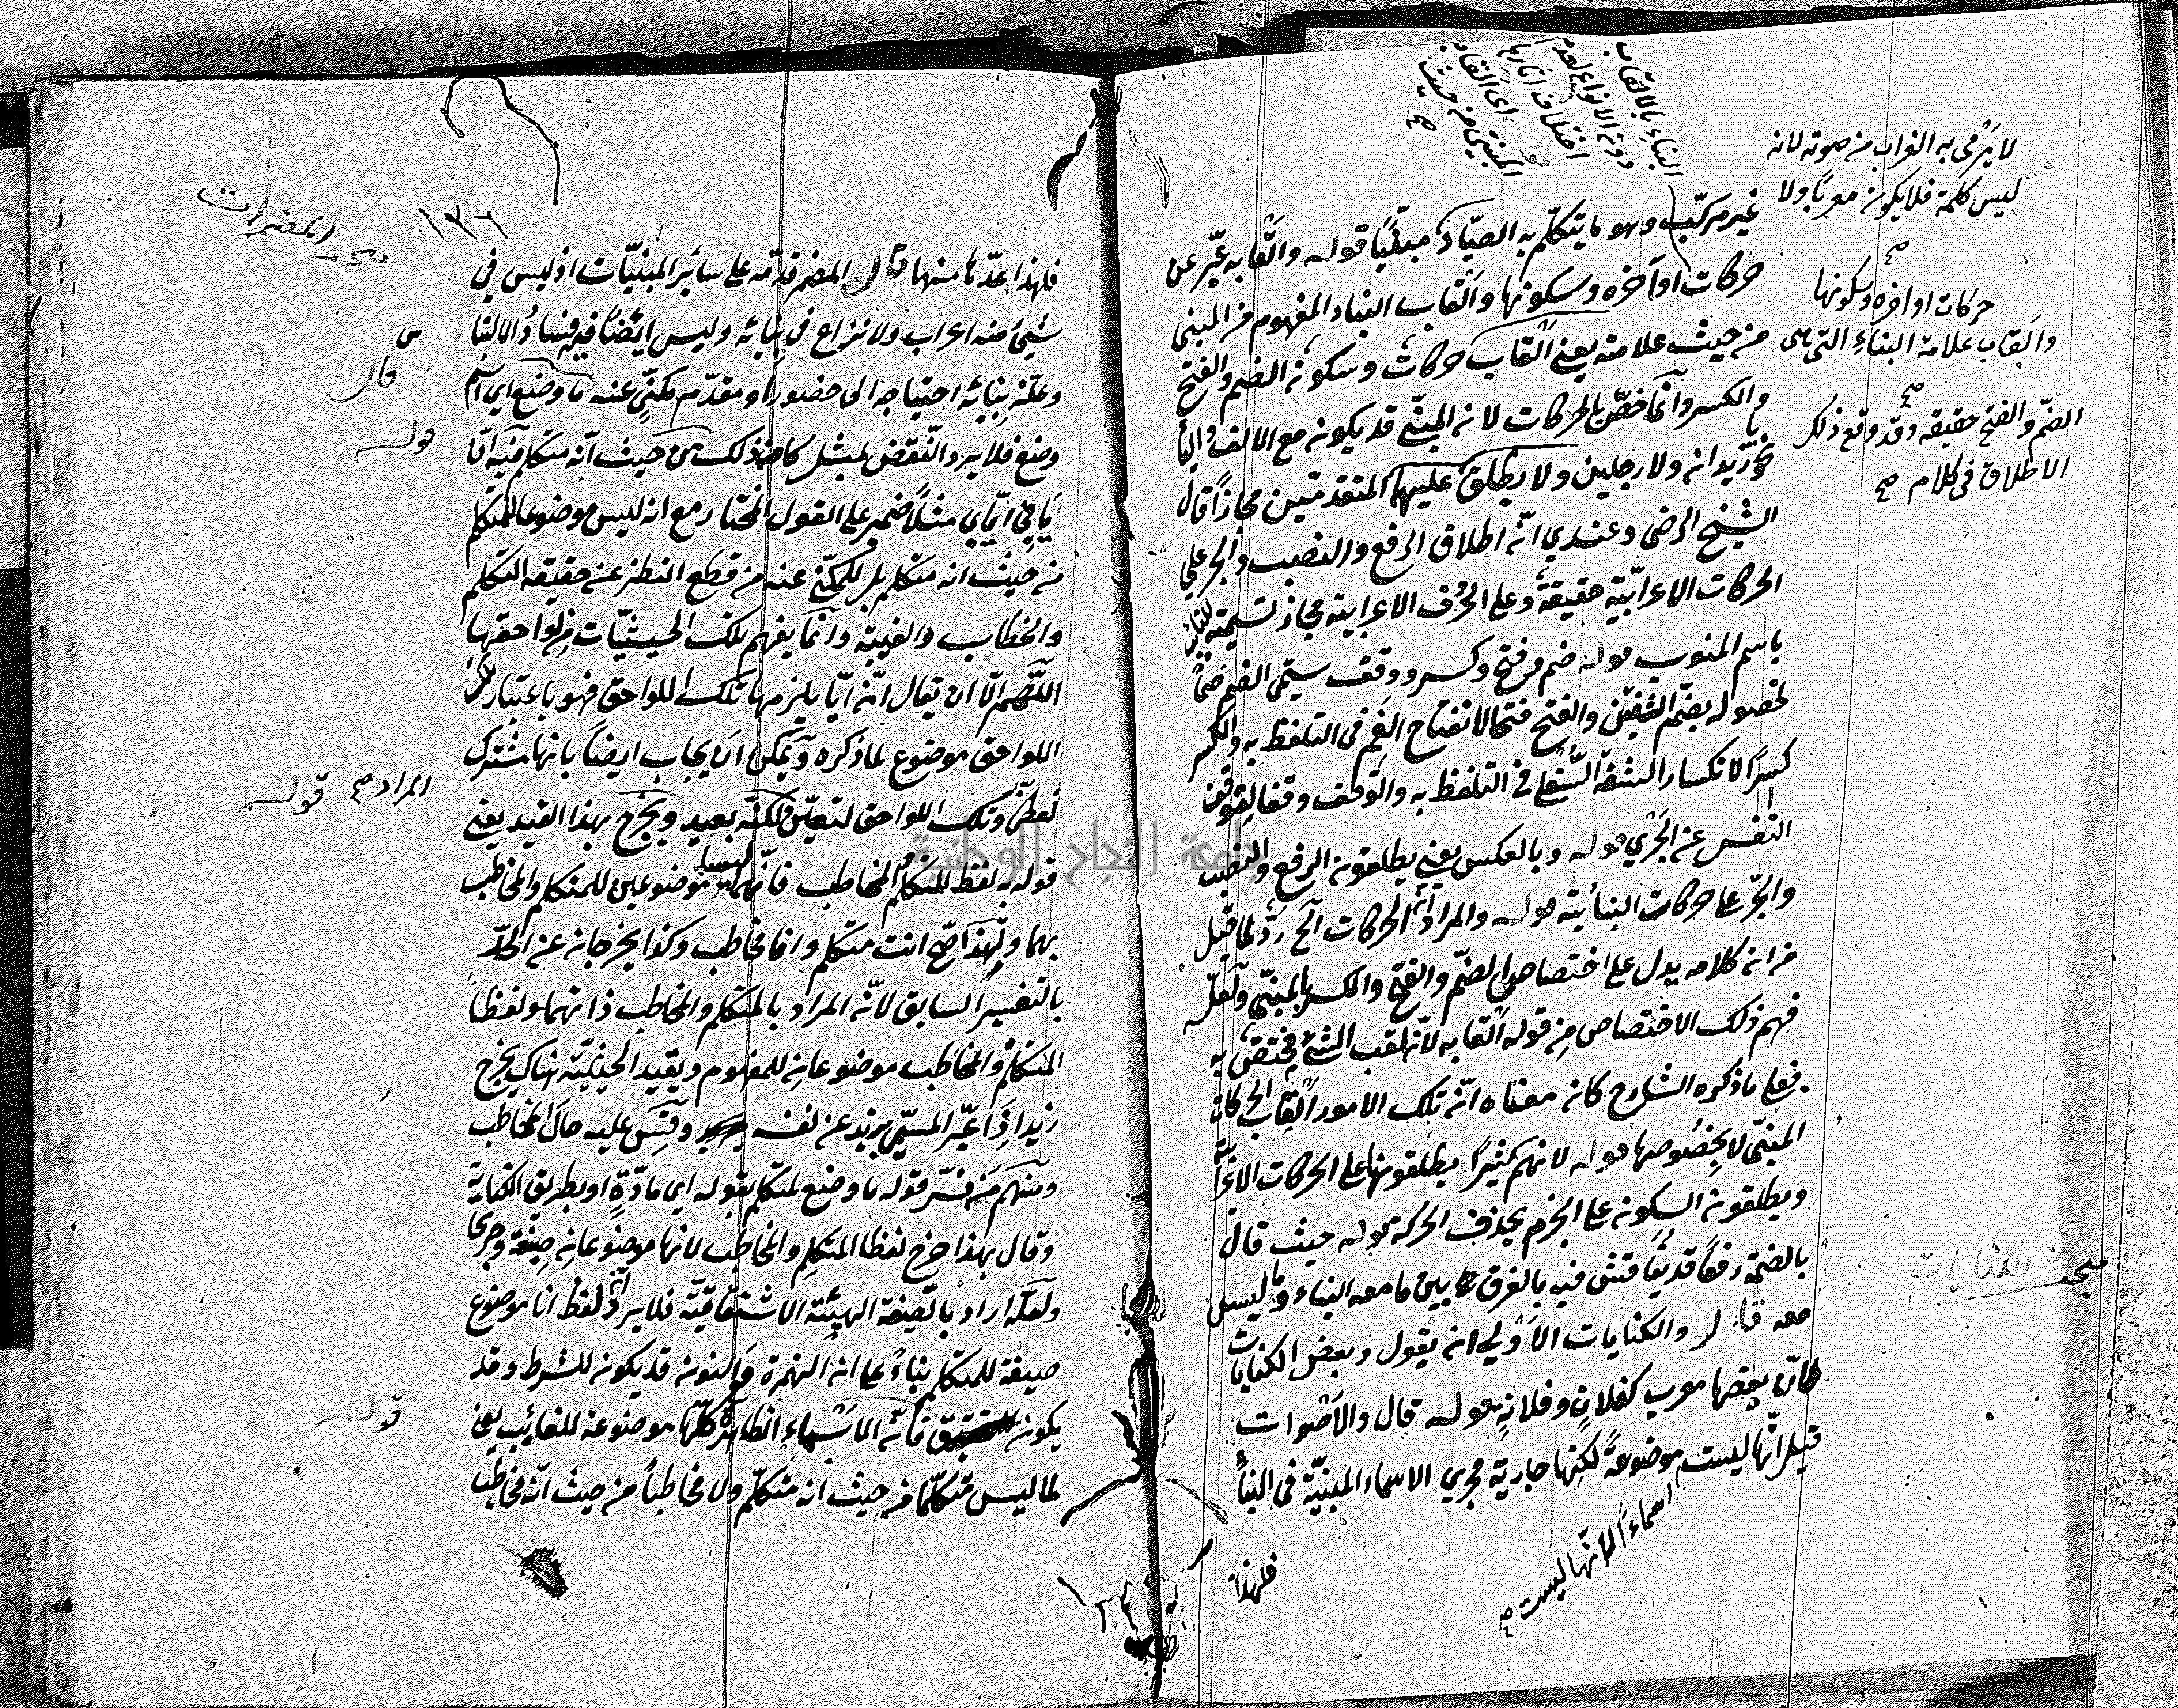 لا يرمى به الغراب من صوته لانه
ليس كلمة فلا يكون معربا ولا
غير مركّب وهو ما يتكلّم به الصيّاد مبنيّا قوله والقابه عبّر عن
حركات اواخره وسكونها والقاب البناء المفهوم من المبنى
من حيث علامته يعنى القاب حركات وسكونه الضم والفتح
والكسر وانّما خصّ بالحركات لانه المبنىّ قد يكون مع الالف والياء
نحو يا زيدان ولا رجلين ولا يطلق عليهما المتقدمين مجازا قال
الشيخ الرضى وعندي انّه اطلاق الرفع والنصب والجر على
الحركات الاعرابيّة حقيقة وعلى الحروف الاعرابية مجاز تسمية للنائب
باسم المنوب قوله ضم وفتح وكسر ووقف سمّى الضم ضمّا
لحصوله بضمّ الشفتين والفتح فتحا لانفتاح الفم فى التلفظ به والكسر
كسرا لانكسار الشفة السّفلى فى التلفظ به والوقف وقفا لتوقف
النفس عن الجري قوله وبالعكس يعنى يطلقونه الرفع والنصب
والجرّ على حركات البنائية قوله والمراد انّ الحركات الخ ردّ لما قيل
من انه كلامه يدل على اختصاص الضمّ والفتح والكسر بالمبنىّ ولعلّه
فهم ذلك الاختصاص من قوله القابه لانّه لقب الشئ مختصّ به
فعلى ما ذكره الشارح كانه معناه انّه تلك الامور القاب الحركات
المبنىّ لا بخصوصها قوله لانهم كثيرا يطلقونها على الحركات الاعرابية
ويطلقونه السكونه على الجزم بحذف الحركة قوله حيث قال
بالضمّة رفعا قد يناقش فيه بالفرق بين ما معه البناء وما ليس
معه قال والكنايات الاولى ان يقول وبعض الكنايات
لانّ بعضها معرب كفلان وفلانة قوله قال والاصوات
قيل انّها ليست موضوعة لكنها جارية مجري الاسماء المبنيّة فى البناء
فلهذا
حركات اواخره وسكونها
والقاب علامة البناء التى هى
الضمّ والفتح حقيقه وقد وقع ذلك
الاطلاق فى كلام صح
مبحث الكنايات
اسماء لانّها ليست صح
مبحث المضمرات
١٣٦
فلهذا عدّها منها قال المضمر قدّمه على سائر المبنيّات اذ ليس في
شئ منه اعراب ولا نزاع فى بنائه وليس ايضا فيه فساد الالتبا
س
وعلّة بنائه احتياجه الى حضور او مقدّم مكنّى عنه ما وضع اي اسم
قال
وضع فلا يرد النّقض بمثل كاف ذلك من حيث انّه متكلم فيه انّا
قوله
يا في ايّاي مثلا ضمير على القول المختار مع انه ليس موضوعا للمتكلم
من حيث انه متكلم بل للمكنّى عنه من قطع النظر عن حقيقه التكلم
والخطاب والغيبة وانّما يفهم تلك الحيثيّات من لواحقها
اللّهمّ الّا ان يقال انّه ايّا يلزمها تلك اللواحق فهو باعتبار تلك
اللواحق موضوع لما ذكره ويمكن ان يجاب ايضا بانها مشترك
لفظىّ وتلك اللواحق لتعيّن المراد لكنّه بعيد قوله ويخرج بهذا القيد يعنى
قوله به لفظ المتكلم والمخاطب فانّهما ليسا موضوعين للمتكلم والمخاطب
بهما ولهذا صحّ انت متكلم وانا مخاطب وكذا يخرجان عن الحدّ
بالتفسير السابق لانّه المراد بالمتكلم والمخاطب ذاتهما ولفظا
المتكلم والمخاطب موضوعان للمفهوم وبقيد الحيثيّة هناك يخرج
زيد اذا عبّر المسمّى بزيد عن نفسه وقس عليه حال المخاطب
ومنهم من فسّر قوله ما وضع لمتكلم بقوله اى مادّة او بطريق الكناية
وقال بهذا خرج لفظا المتكلم والمخاطب لانها موضوعان صيغة وصريحا
ولعلّه اراد بالصيغة الهيئة الاشتقاقيّة فلا يرد انّ لفظ انا موضوع
صيغة للمتكلم بناء على انه الهمزة والنونه قد يكون للشرط وقد
يكونه فانّه الاسماء الظاهرة كلّها موضوعة للغائب يعنى
قوله
لما ليس متكلّما من حيث انه متكلّم ولا مخاطبا من حيث انّه مخاطب